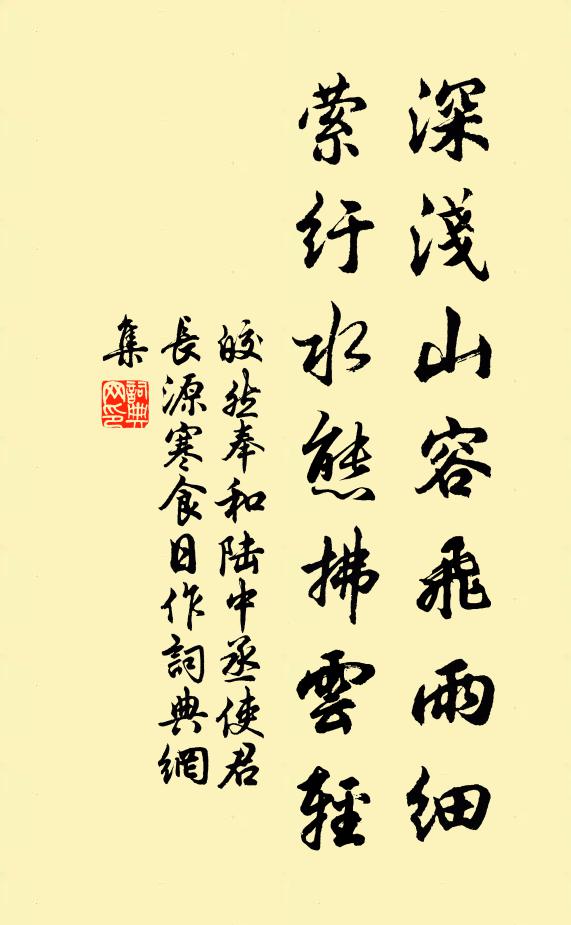 深淺山容飛雨細
萦紆水態拂雲輕
皎然奉和陸中丞使君
長源寒食日作詞典網
集
詞典网印